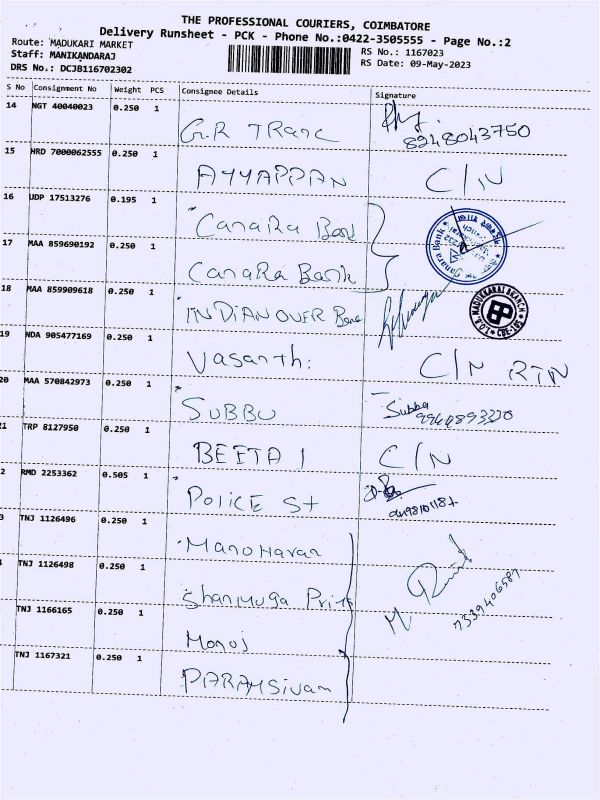 THE PROFESSIONAL COURIERS, COIMBATORE
Delivery Runsheet - PCK - Phone No.:0422-3505555 - Page No.:2
Route: MADUKARI MARKET RS No.: 1167023
Staff: MANIKANDARAJ RS Date: 09-May-2023
DRS No.: DCJB116702302
S No Consignment No Weight PCS Consignee Details Signature
14 NGT 40040023 0.250 1
G.R TRANC 8248043750
15 HRD 7000062555 0.250 1
AYYAPPAN C/N
16 UDP 17513276 0.195 1
CANARA Bank
17 MAA 859690192 0.250 1
CANARA Bank
Canara Bank
18 MAA 859909618 0.250 1
INDIAN OVER Bank
MADUKKARAI BRANCH
I.O.B. CBE-105
19 NDA 905477169 0.250 1
Vasanthi C/N RTN
20 MAA 570842973 0.250 1
SUBBU Subba
21 TRP 8127950 0.250 1
BEETA I C/N
2 RMD 2253362 0.505 1
POLICE St
3 TNJ 1126496 0.250 1
Manoharan
TNJ 1126498 0.250 1
Shanmuga Priya
7539406589
TNJ 1166165 0.250 1
Manoj
TNJ 1167321 0.250 1
PARAMSivam